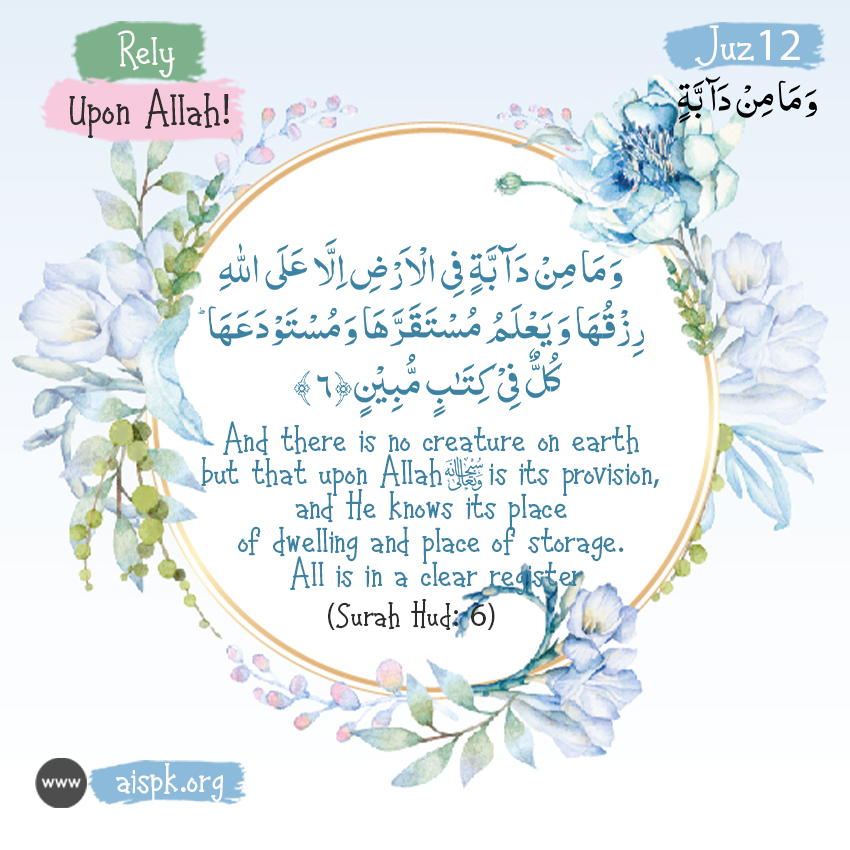 Rely
Upon Allah!
Juz 12
وَمَا مِنْ دَآبَّةٍ
وَمَا مِنْ دَآبَّةٍ فِي الْاَرْضِ اِلَّا عَلَى اللهِ
رِزْقُهَا وَيَعْلَمُ مُسْتَقَرَّهَا وَمُسْتَوْدَعَهَا ؕ
كُلٌّ فِيْ كِتٰبٍ مُّبِيْنٍ ﴿٦﴾
And there is no creature on earth
but that upon Allah ﷻ is its provision,
and He knows its place
of dwelling and place of storage.
All is in a clear register
(Surah Hud: 6)
www aispk.org